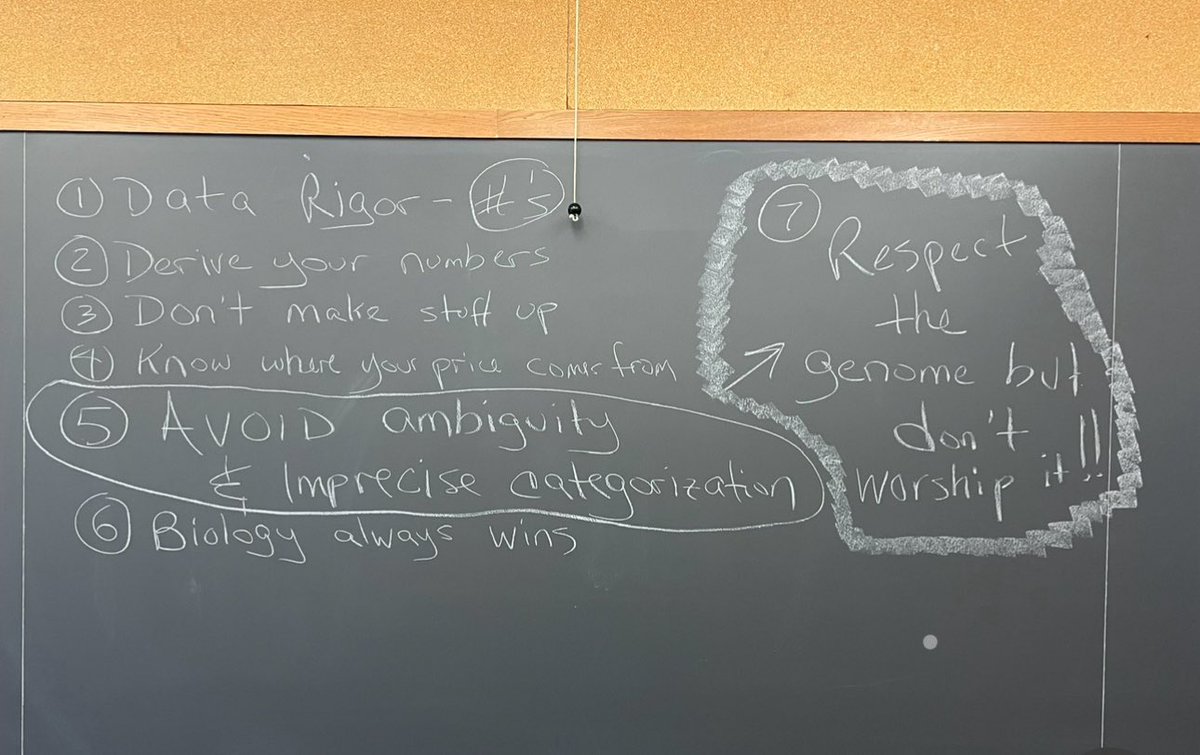 ① Data Rigor - #'s
② Derive your numbers
③ Don't make stuff up
④ Know where your price comes from
⑤ AVOID ambiguity
& Imprecise categorization
⑥ Biology always wins
⑦ Respect
the
genome but
don't
worship it!!